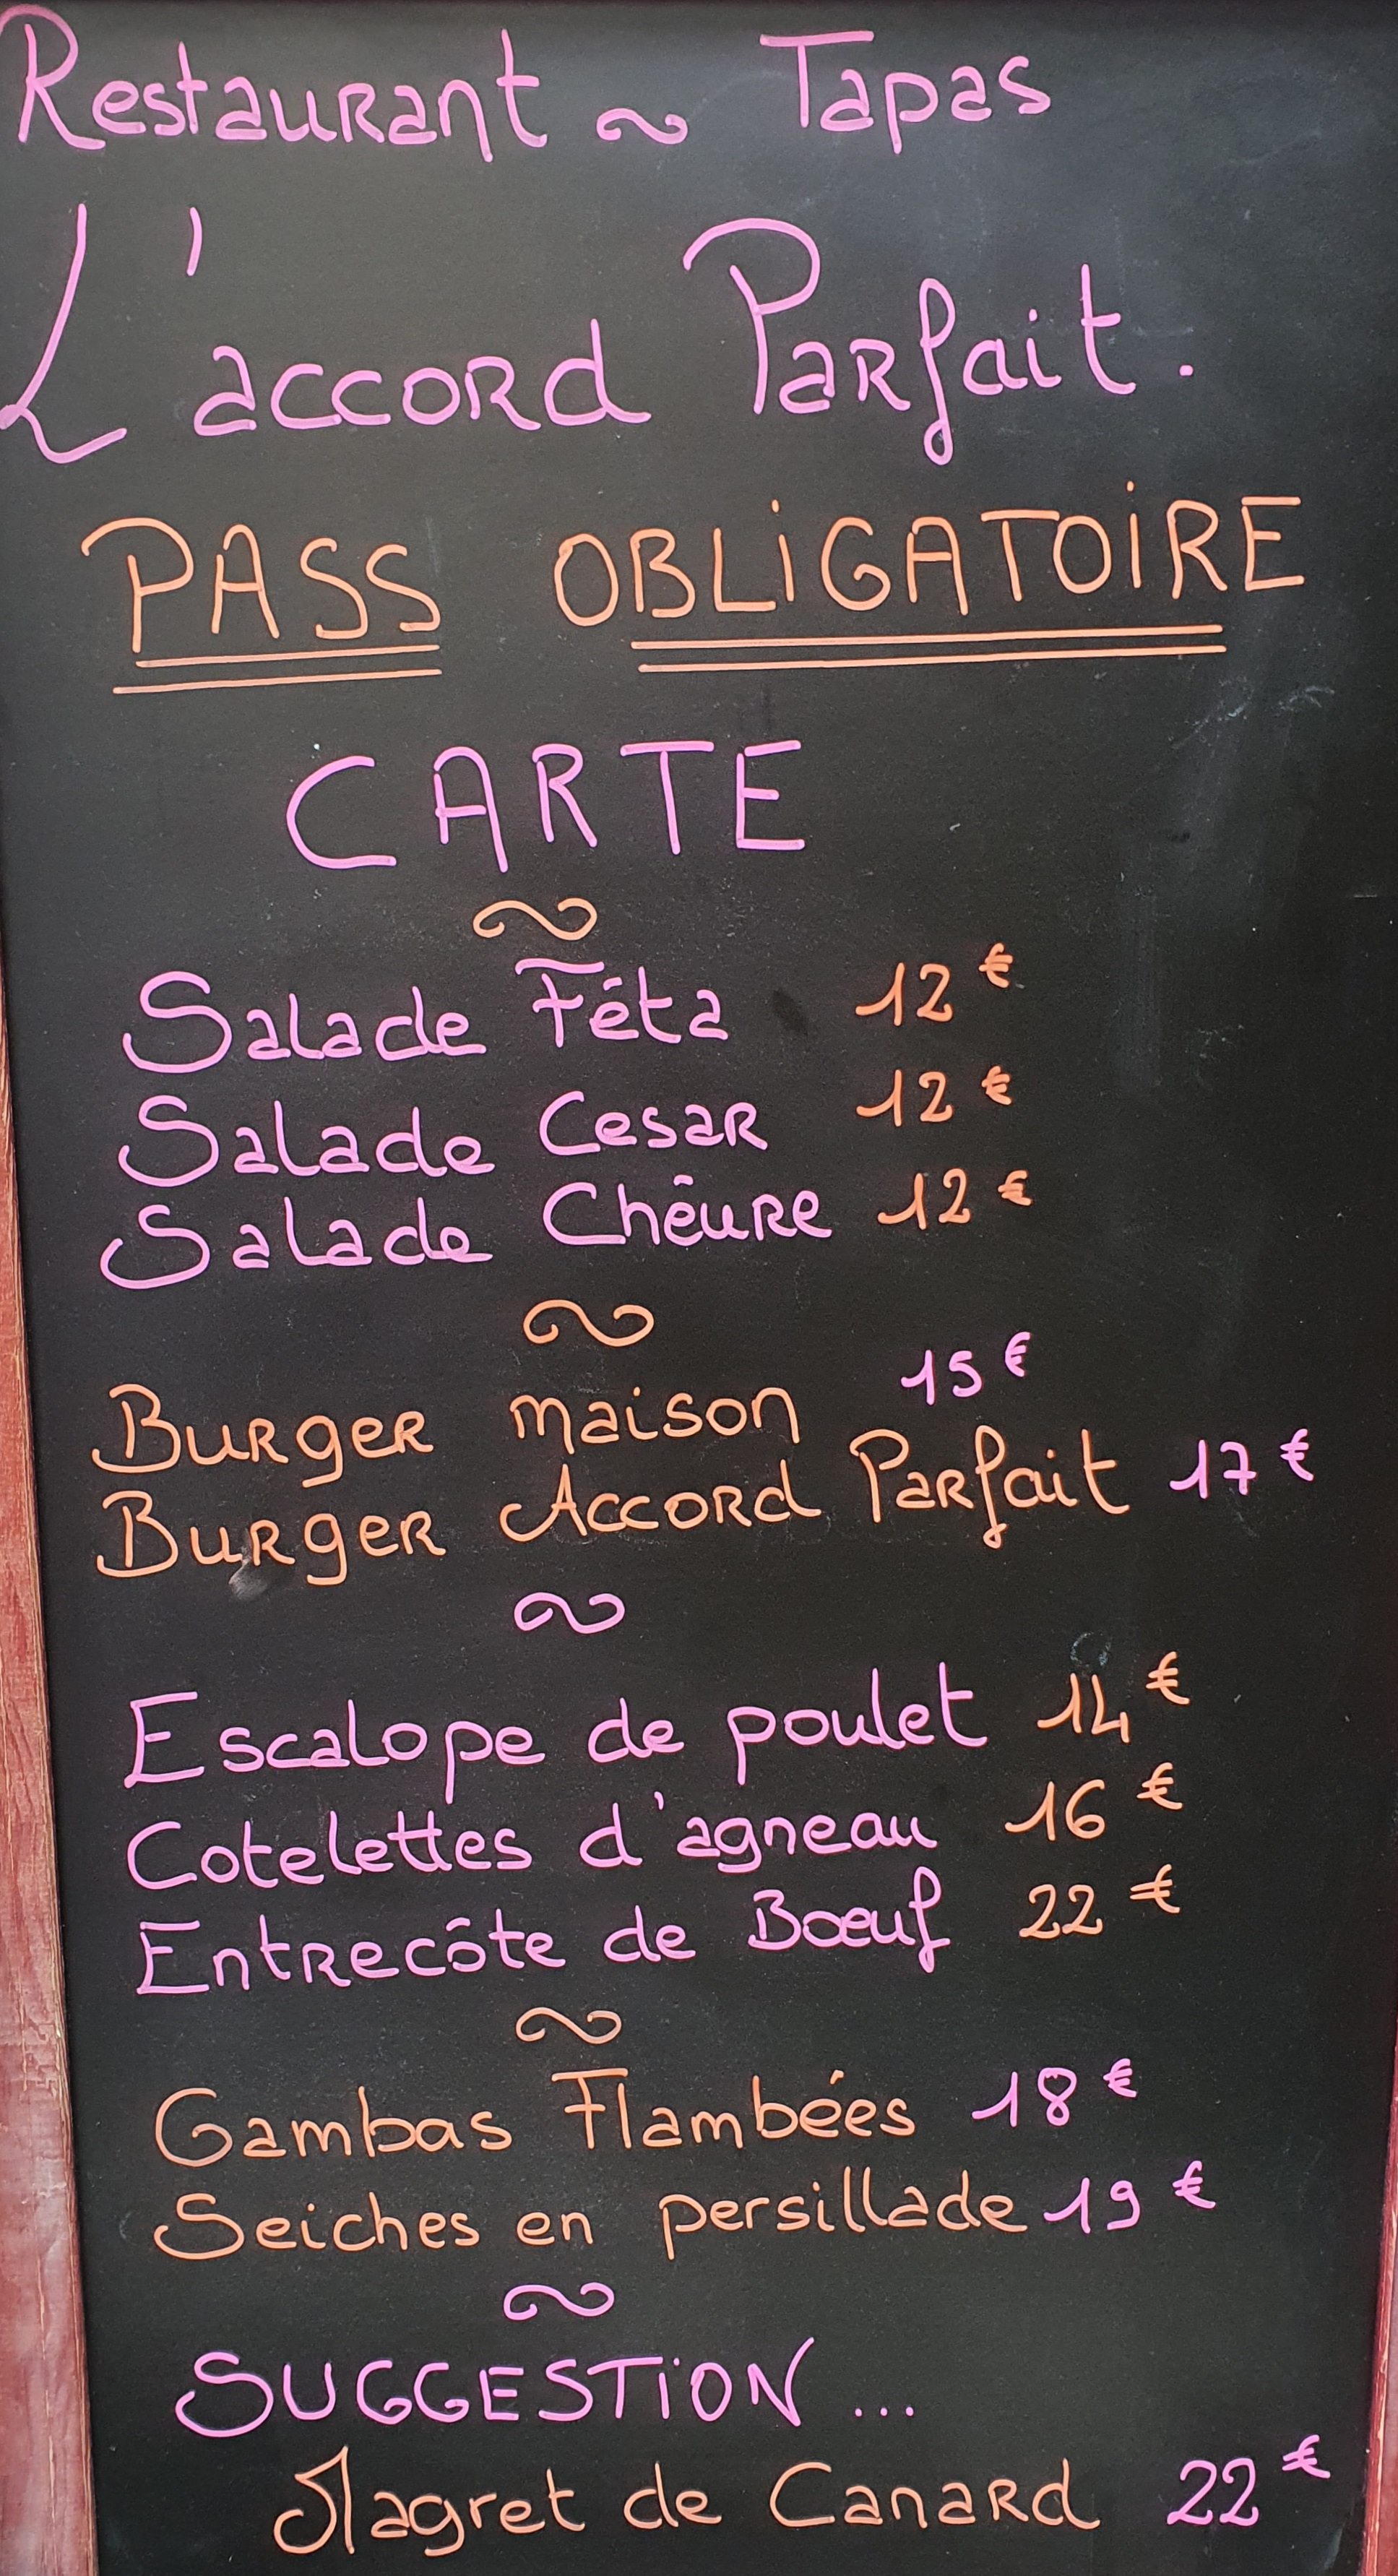 Restaurant ~ Tapas
L'accord Parfait.
PASS OBLIGATOIRE
CARTE
~
Salade Féta 12€
Salade Cesar 12€
Salade Chêvre 12€
~
Burger maison 15€
Burger Accord Parfait 17€
~
Escalope de poulet 14€
Cotelettes d'agneau 16€
Entrecôte de Bœuf 22€
~
Gambas Flambées 18€
Seiches en persillade 19€
~
SUGGESTION...
Magret de Canard 22€